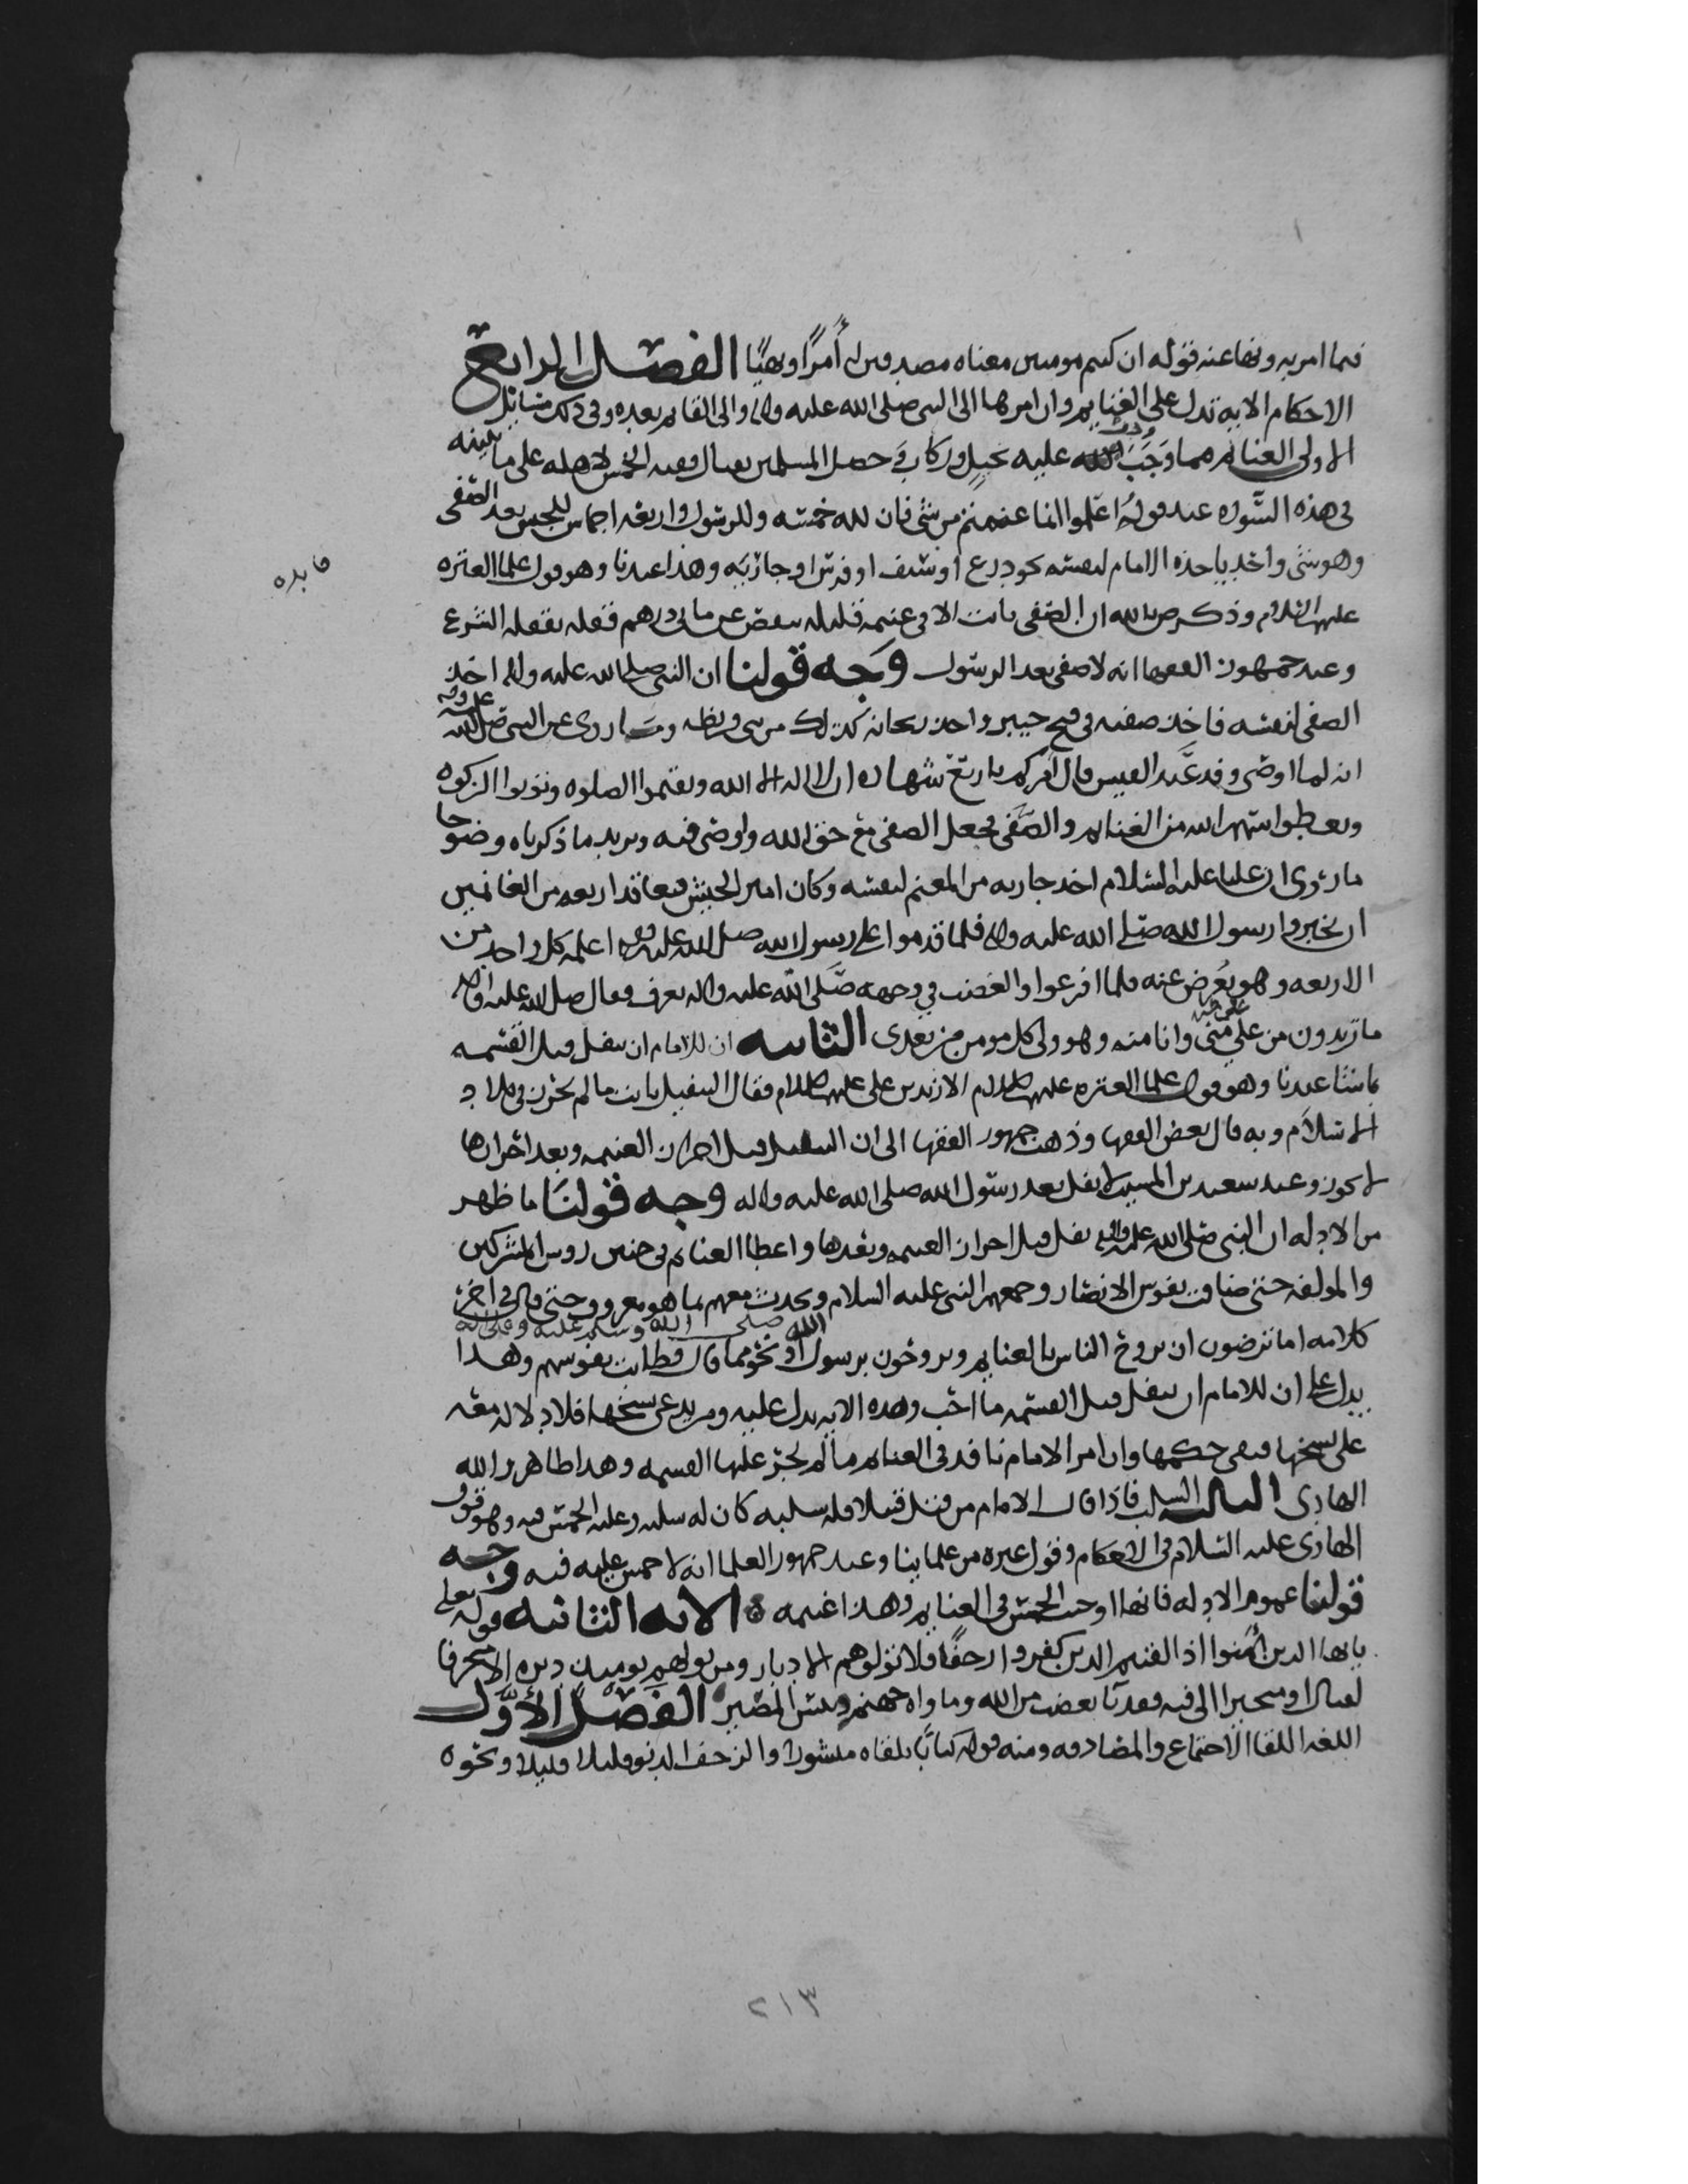 فيما امر به ونها عنه قوله ان كنتم مومنين معناه مصدقين له أمرًا ونهيًا الفصل الرابع
الاحكام الايه تدل على الغنايم وان امرها الى النبي صلى الله عليه واله والى القايم بعده وفي ذلك مسايل
الاولى الغنايم مما وجب عليه بخيل وركاب في حصل المسلمين بقتال وفيه الخمس لاهله على ما نبينه
في هذه السوره عند قوله اعلموا انما غنمتم من شي فان لله خمسه وللرسول واربعه اخماس للجيش بعد الصفي
وهو شي واحد ياخذه الامام لنفسه نحو درع او سيف او فرس او جاريه وهذا عندنا وهو قول علما العتره
فايده
عليهم السلام وذكر ص بالله ان الصفي ثابت الا في غنيمه قليله تنقص عن مايتي درهم فقله بقله الشرع
وعند جمهور الفقها انه لا صفي بعد الرسول وجه قولنا ان النبي صلى الله عليه واله اخذ
الصفي لنفسه فاخذ صفيه في فتح خيبر واخذ ريحانه كذلك من بني قريظه وما روي عن النبي صلى الله عليه واله
انه لما اوصى وفد عبد القيس قال آمركم باربع شهاده ان لا اله الا الله وتقيموا الصلوه وتوتوا الزكوه
وتعطوا سهم الله من الغنايم والصفي فجعل الصفي مع حق الله واوصى فيه ويزيد ما ذكرناه وضوحا
ما روي ان عليا عليه السلام اخذ جاريه من المغنم لنفسه وكان امير الجيش فتعاقد اربعه من الغانمين
ان يخبروا رسول الله صلى الله عليه واله فلما قدموا على رسول الله صلى الله عليه واله اعلمه كل واحد من
الاربعه وهو يعرض عنه فلما افرغوا والغضب في وجهه صلى الله عليه واله يعرف فقال صلى الله عليه واله
ما تريدون من علي علي مني وانا منه وهو ولي كل مومن من بعدي الثانيه ان للامام ان ينفل قبل القسمه
ما شا عندنا وهو قول علما العتره عليهم السلام الا زيد بن علي عليهم السلام فقال التنفيل ثابت ما لم يحرز في بلاد
الاسلام وبه قال بعض الفقها وذهب جمهور الفقها الى ان التنفيل قبل احراز الغنيمه وبعد احرازها
لا يجوز وعند سعيد بن المسيب لا نفل بعد رسول الله صلى الله عليه واله وجه قولنا ما ظهر
من الادله ان النبي صلى الله عليه واله نفل قبل احراز الغنيمه وبعدها واعطا الغنايم في حنين روس المشركين
والمولفه حتى ضاقت نفوس الانصار وجمعهم النبي عليه السلام وتحدث معهم بما هو معروف حتى قال في اخر
كلامه اما ترضون ان يروح الناس بالغنايم وتروحون برسول الله صلى الله وسلم عليه وعلى اله او نحو مما قال فطابت نفوسهم وهذا
يدل على ان للامام ان ينفل قبل القسمه ما احب وهذه الايه تدل عليه ومن يدعي نسخها فلا دلاله معه
على نسخها فبقي حكمها وان امر الامام نافذ في الغنايم ما لم يجز عليها القسمه وهذا ظاهر والله
الهادي الثالثه السلب فاذا قال الامام من قتل قتيلا فله سلبه كان له سلبه وعليه الخمس فيه وهو قول
الهادي عليه السلام في الاحكام وقول غيره من علماينا وعند جمهور العلما انه لا خمس عليه فيه وجه
قولنا عموم الادله فانها اوجبت الخمس في الغنايم وهذا غنيمه الايه الثانيه قوله تعلى
يايها الذين آمنوا اذا لقيتم الذين كفروا زحفًا فلا تولوهم الادبار ومن يولهم يوميذ دبره الا متحرفا
لقتال او متحيزا الى فيه فقد بآ بغضب من الله وماواه جهنم وبيس المصير الفصل الأول
اللغه اللقا الاجتماع والمصادفه ومنه قوله كتابًا يلقاه منشورا والزحف الدنو قليلا قليلا ونحوه
٢١٣